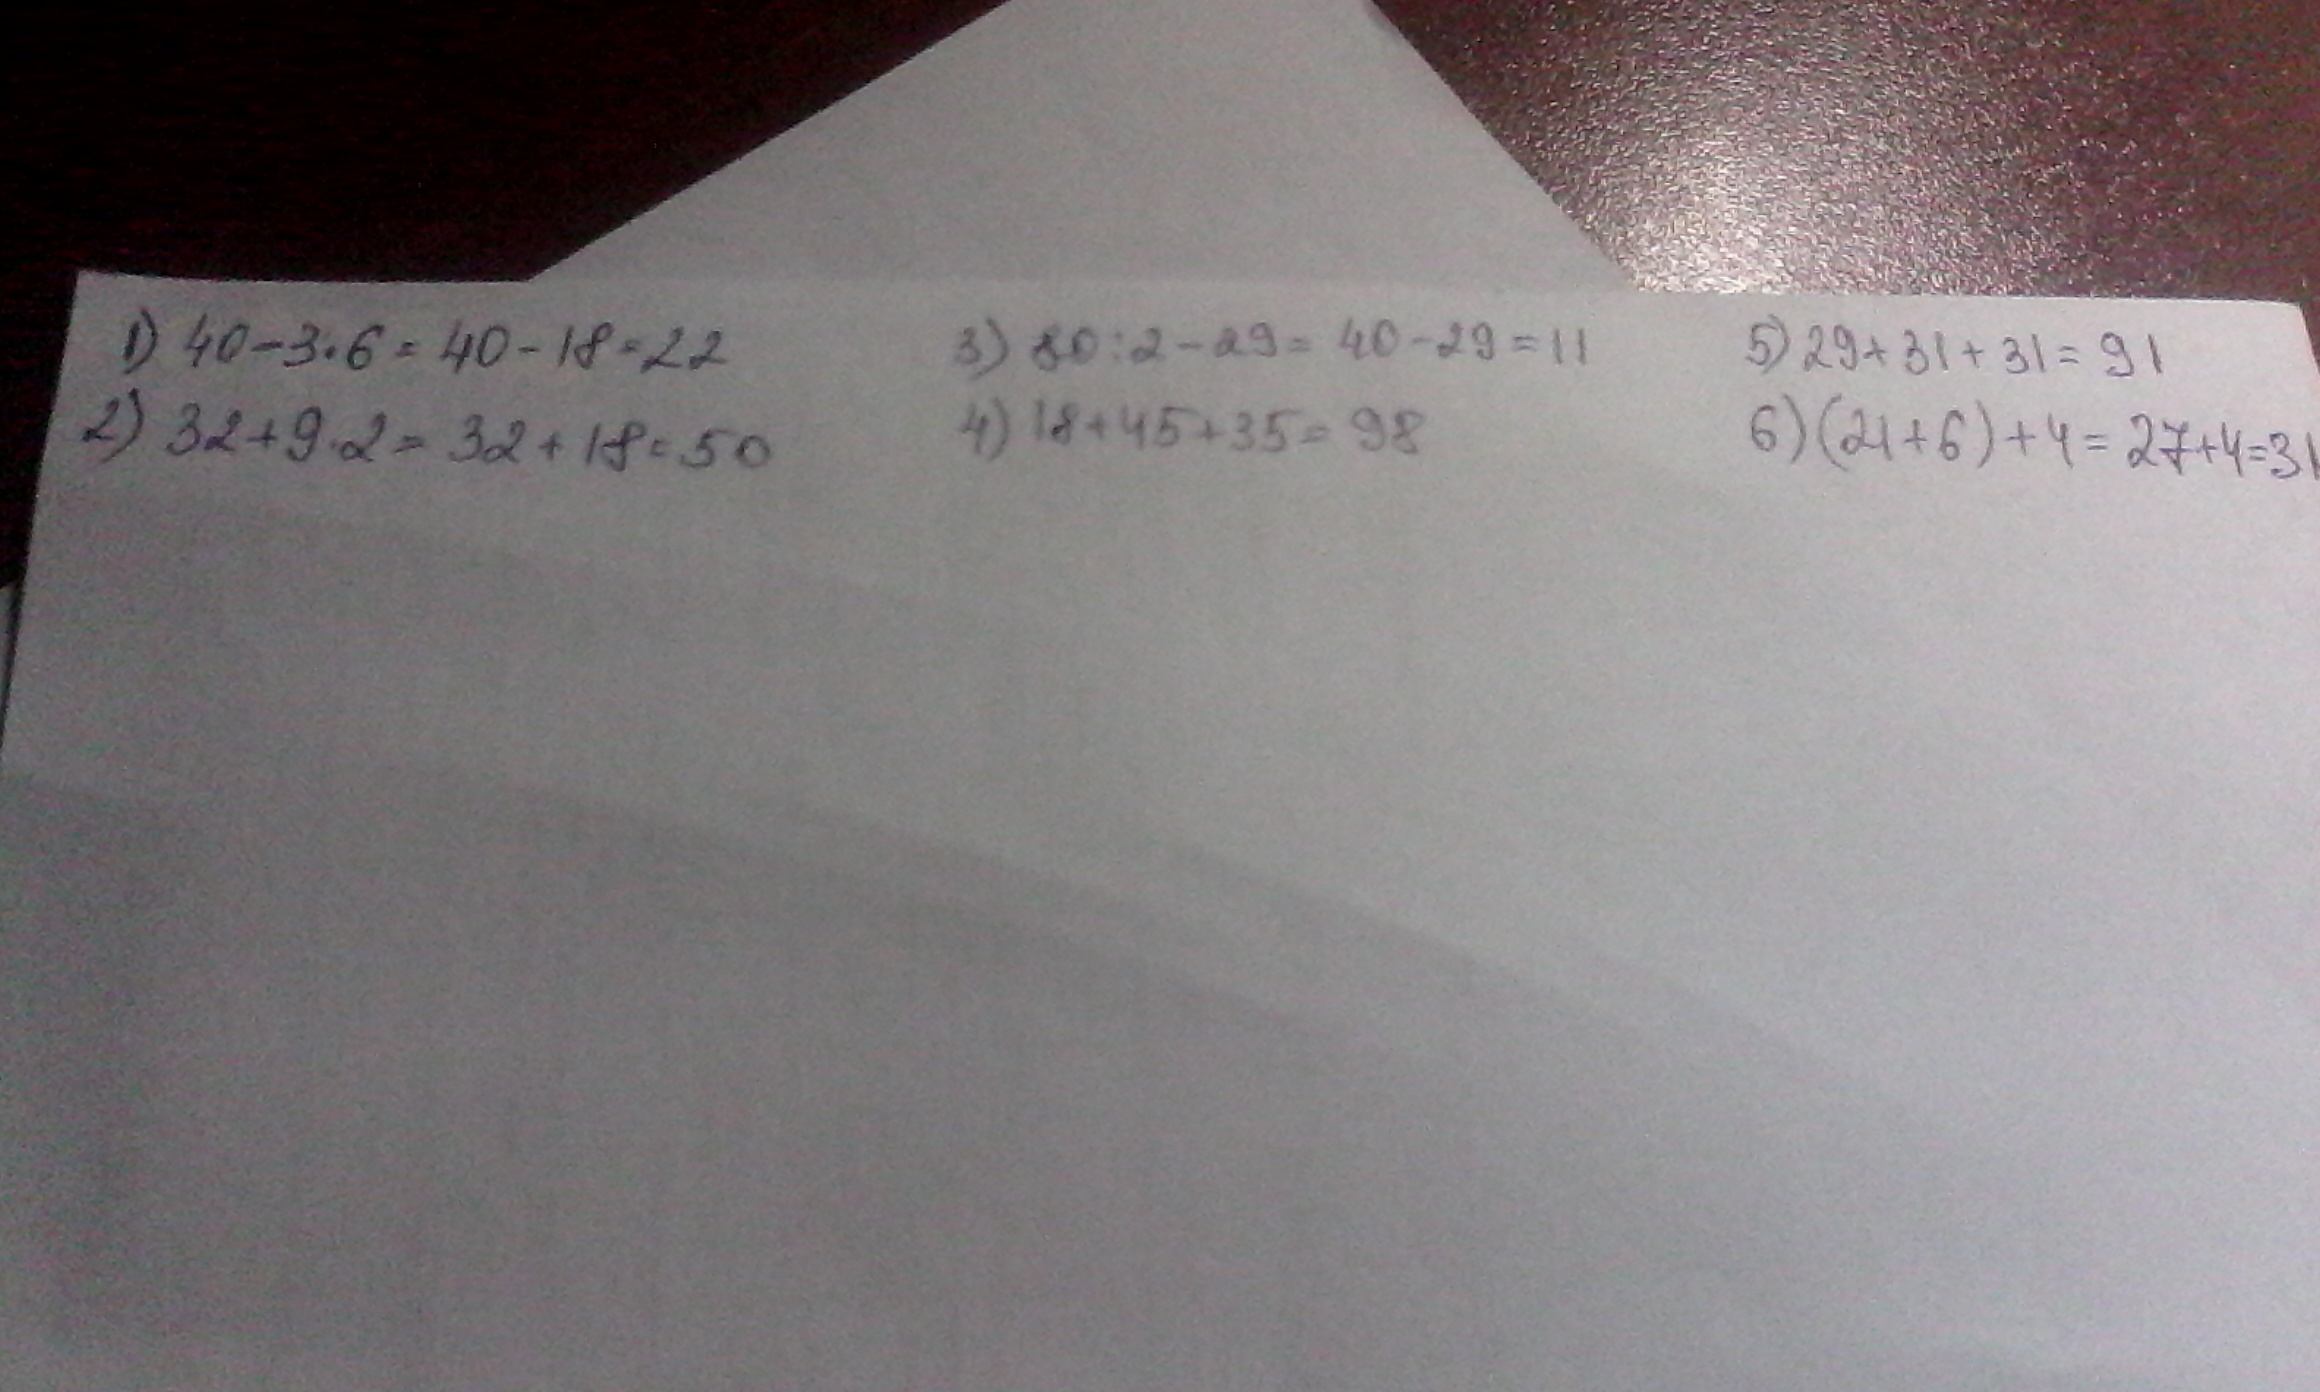 1) 40-3·6=40-18=22
2) 32+9·2=32+18=50
3) 80:2-29=40-29=11
4) 18+45+35=98
5) 29+31+31=91
6) (21+6)+4=27+4=31